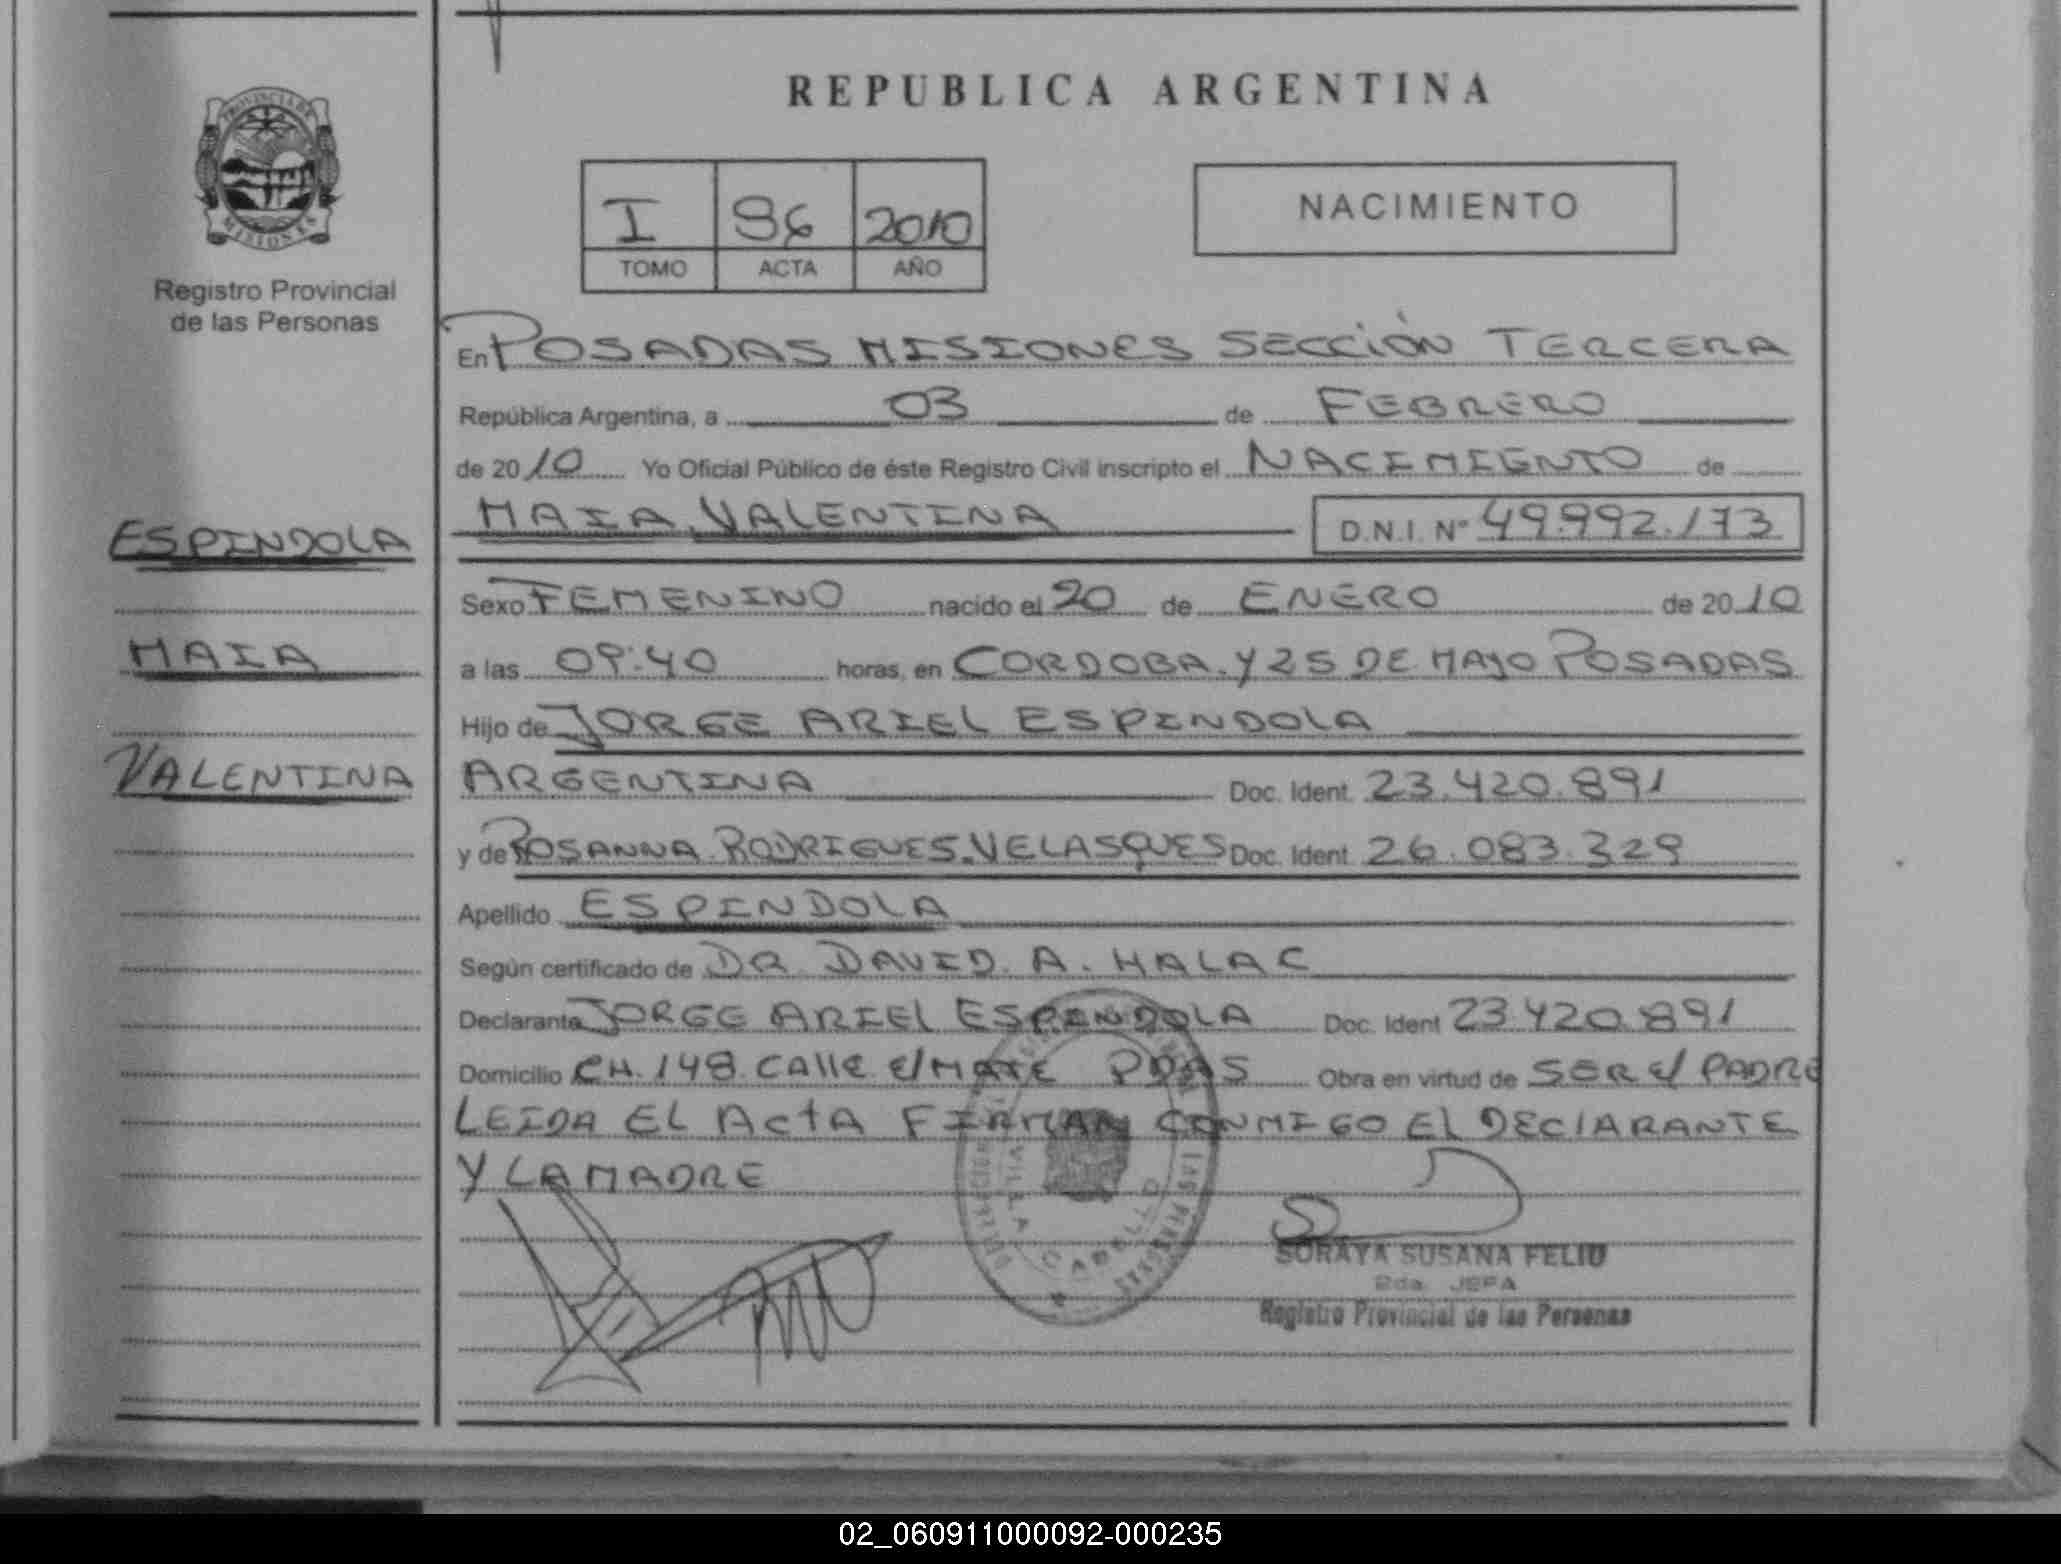 REPUBLICA ARGENTINA
PROVINCIA DE
MISIONES
Registro Provincial
de las Personas
I 96 2010
TOMO ACTA AÑO
NACIMIENTO
En POSADAS MISIONES SECCIÓN TERCERA
República Argentina, a 03 de FEBRERO
de 2010 Yo Oficial Público de éste Registro Civil inscripto el NACIMIENTO de
MAIA VALENTINA D.N.I. Nº 49.992.173
ESPINDOLA
MAIA
VALENTINA
Sexo FEMENINO nacido el 20 de ENERO de 2010
a las 09:40 horas, en CORDOBA Y 25 DE MAYO POSADAS
Hijo de JORGE ARIEL ESPINDOLA
ARGENTINA Doc. Ident. 23.420.891
y de ROSANNA RODRIGUES VELASQUES Doc. Ident. 26.083.329
Apellido ESPINDOLA
Según certificado de DR DAVID A. HALAC
Declarante JORGE ARIEL ESPINDOLA Doc. Ident 23420891
Domicilio CH. 148 CALLE El MATE PDAS Obra en virtud de SER El PADRE
LEIDA EL ACTA FIRMAN CONMIGO EL DECLARANTE
Y LA MADRE
VILLA CABELLO
SORAYA SUSANA FELIU
2da. JEFA
Registro Provincial de las Personas
02_060911000092-000235